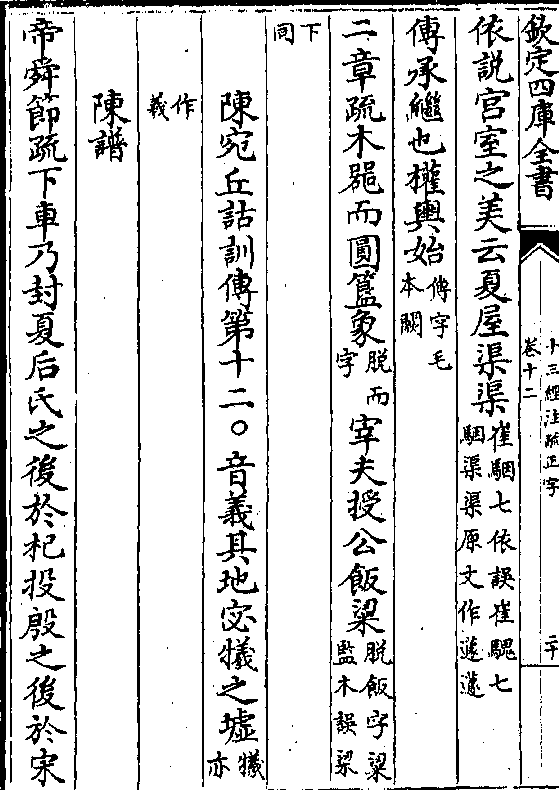 欽定四庫全書
十三經注疏正字
卷十二
二十
依說宫室之美云夏屋渠渠崔駰七依誤崔騩七駰渠渠原文作蘧蘧
傳承繼也權輿始傳字毛本闕
二章疏木器而圓簋象脫而字宰夫授公飯粱脫飯字粱監本誤梁
下同
陳宛丘詁訓傳第十二○音義其地宓犧之墟犧亦
作義
陳譜
帝舜節疏下車乃封夏后氏之後於杞投殷之後於宋